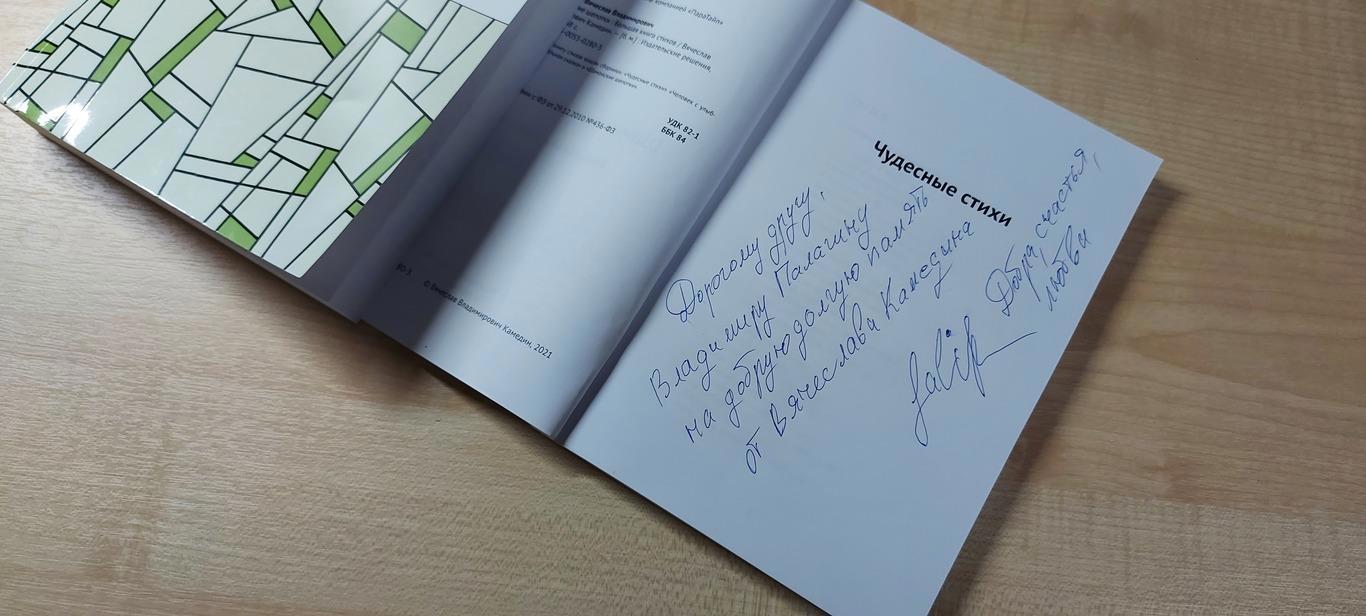 компанией «ПараТайп»
Вячеслав Владимирович
шепоты : Большая книга стихов / Вячеслав
Камедин. — [б. м.] : Издательские решения,
с.
-0055-0280-3
книгу стихов вошли сборники: «Чудесные стихи» «Человек с улыб-
и
с ФЗ от 29.12.2010 №436-ФЗ
УДК 82-1
ББК 84
80-3
© Вячеслав Владимирович Камедин, 2021
Чудесные стихи
Дорогому другу,
Владимиру Палагину
на добрую долгую память
от Вячеслава Камедина
Добра, счастья,
любви